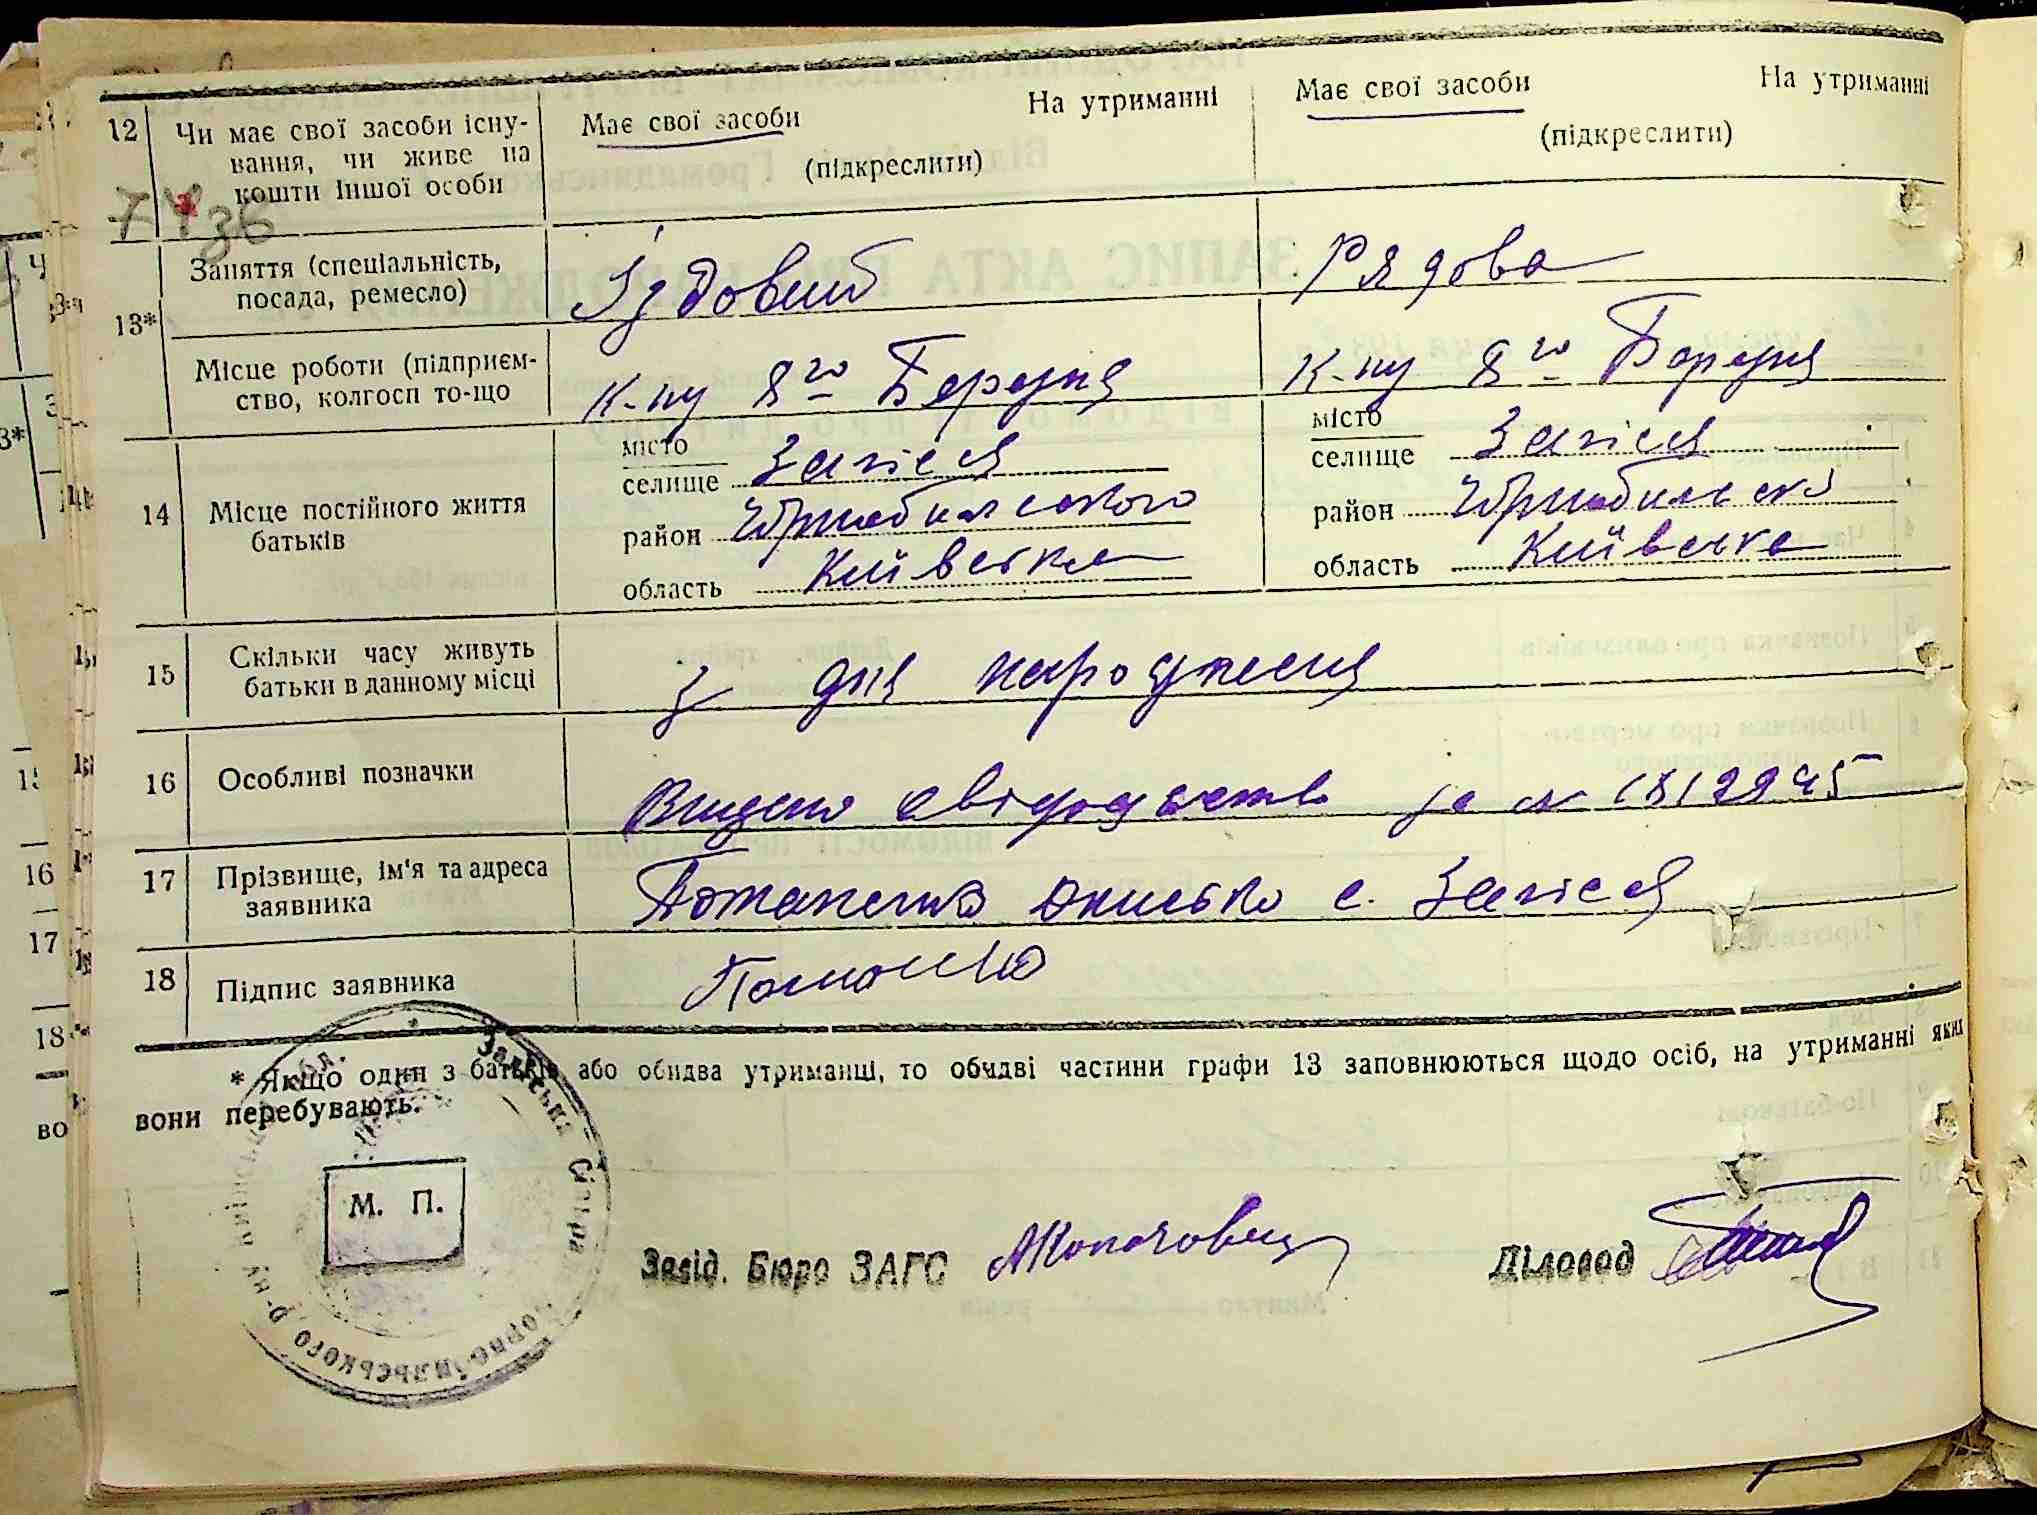 12 Чи має свої засоби існу-
вання, чи живе на
кошти іншої особи
Має свої засоби На утриманні
(підкреслити)
Має свої засоби На утриманні
(підкреслити)
7436
13* Заняття (спеціальність,
посада, ремесло)
Їздовий
Рядова
Місце роботи (підприєм-
ство, колгосп то-що
К-пу 8го Березня
К-пу 8го Березня
14 Місце постійного життя
батьків
місто
селище Залісся
район Чорнобильського
область Київська
місто
селище Залісся
район Чорнобильськ
область Київська
15 Скільки часу живуть
батьки в данному місці
З дня народження
16 Особливі позначки
Видано свідоцтво за №
17 Прізвище, ім'я та адреса
заявника
Потапенко с. Залісся
18 Підпис заявника
* Якщо один з батьків або обидва утриманці, то обидві частини графи 13 заповнюються щодо осіб, на утриманні яких
вони перебувають.
Заліська Сільра
Чорнобильського р-ну Київської обл.
М. П.
Завід. Бюро ЗАГС
Діловод
15
16
17
18
во